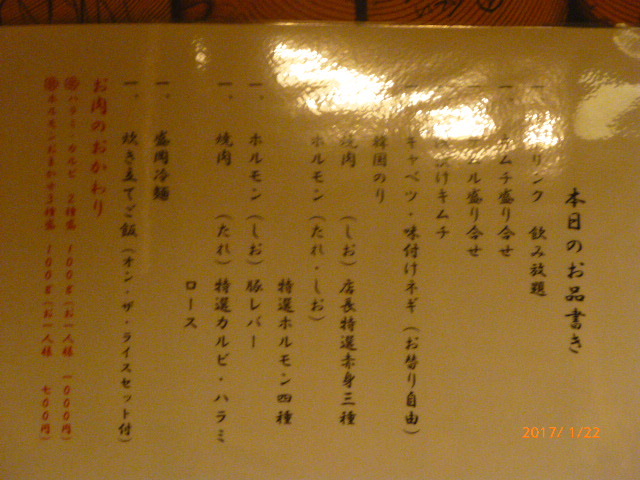 本日のお品書き
一、 リンク 飲み放題
一、 キムチ盛り合せ
ナムル盛り合せ
漬けキムチ
キャベツ・味付けネギ(お替り自由)
韓国のり
焼肉 (しお) 店長特選赤身三種
ホルモン (たれ・しお)
特選ホルモン四種
一、 ホルモン (しお) 豚レバー
一、 焼肉 (たれ) 特選カルビ・ハラミ
ロース
一、 盛岡冷麺
一、 炊き立てご飯 (オン・ザ・ライスセット付)
お肉のおかわり
ハラミ・カルビ 2種盛 100g (お一人様 一000円)
ホルモンおまかせ3種盛 100g (お一人様 七00円)
2017/ 1/22